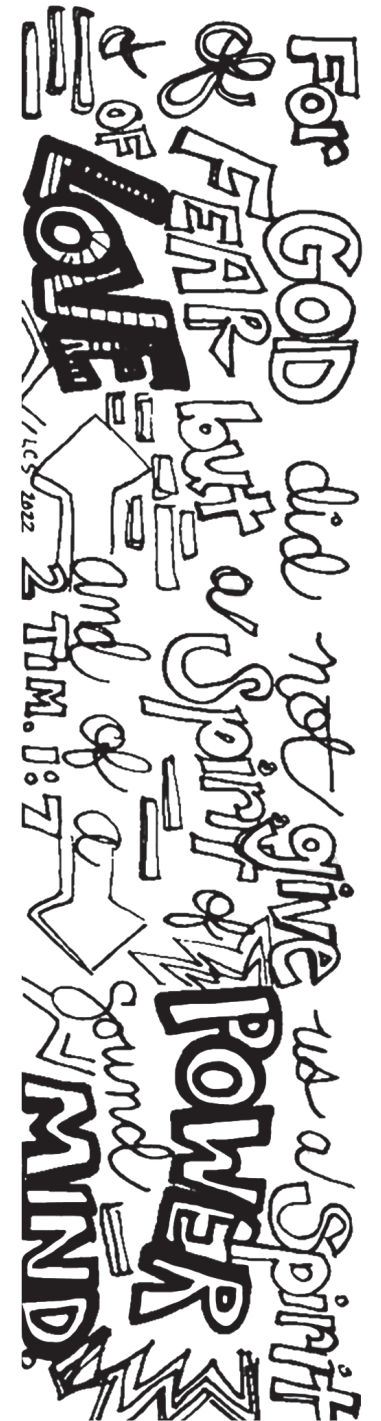 For GOD did not give us a Spirit
of FEAR but a Spirit of POWER
& OF LOVE and of a Sound MIND.
//LCS 2022
2 TIM. 1:7